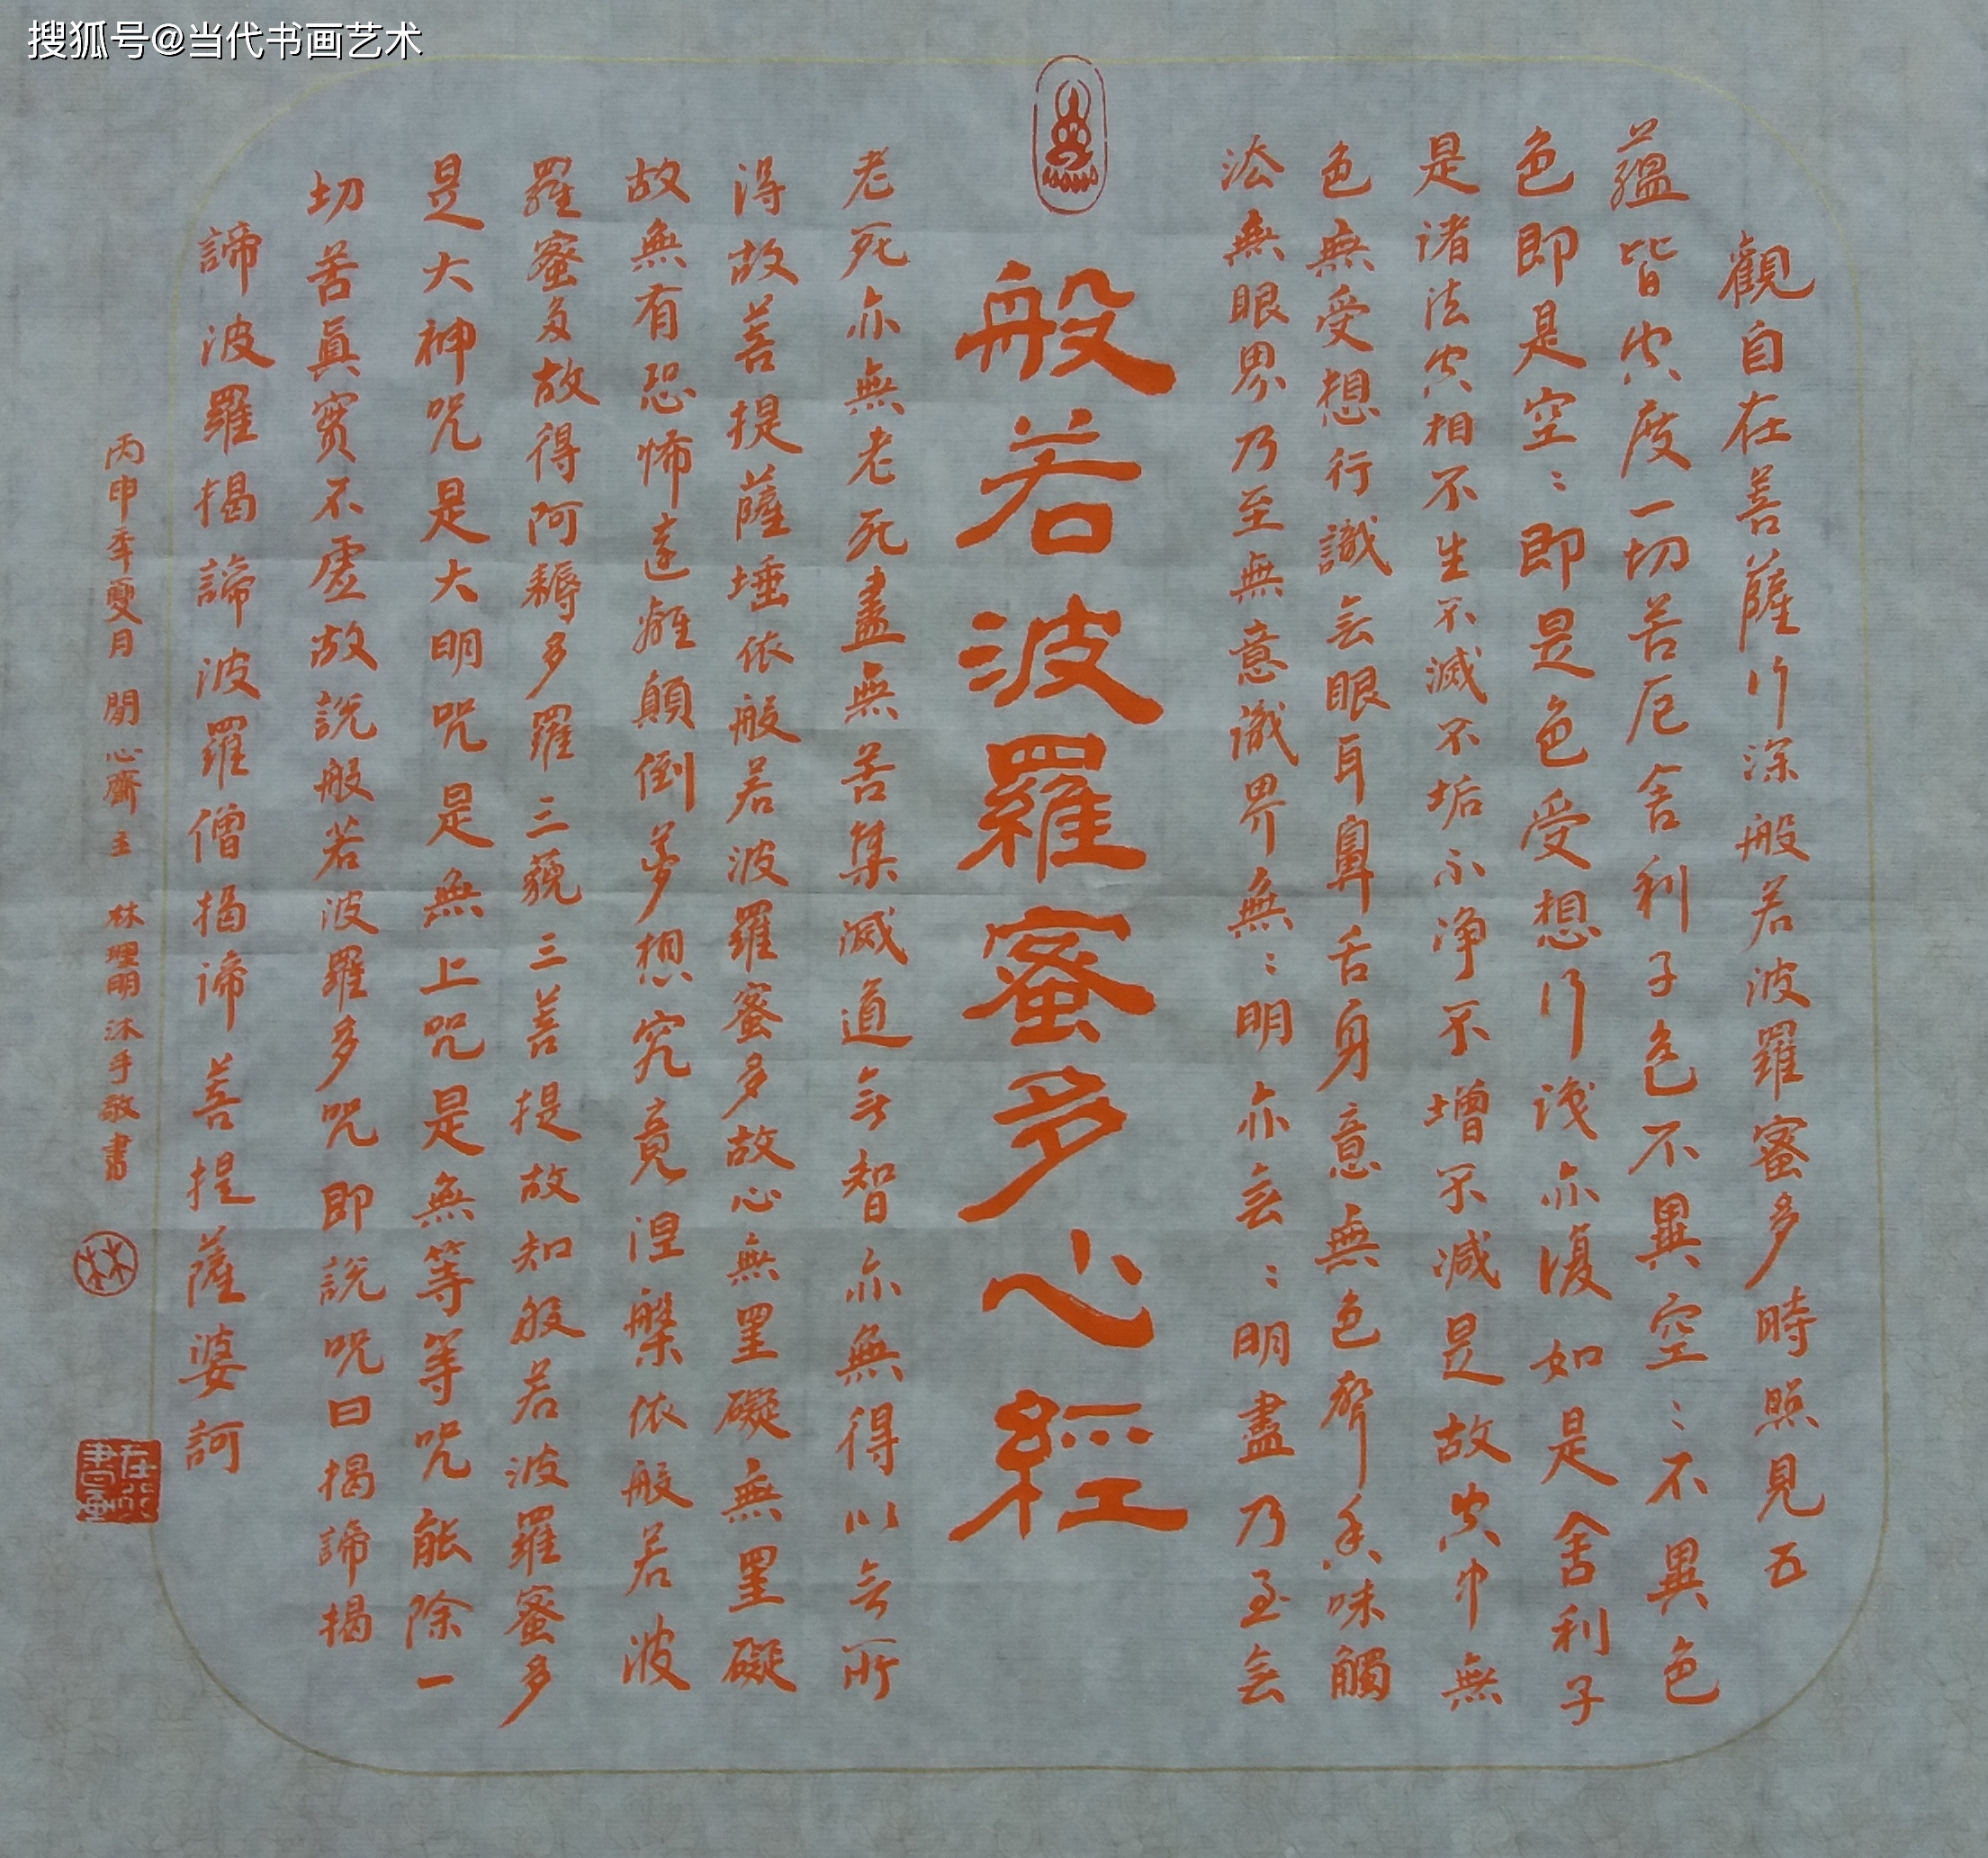 搜狐号@当代书画艺术
觀自在菩薩行深般若波羅蜜多時照見五
蘊皆空度一切苦厄舍利子色不異空:不異色
色即是空:即是色受想行識亦復如是舍利子
是诸法空相不生不滅不垢不净不增不减是故空中無
色無受想行識无眼耳鼻舌身意無色聲香味觸
法無眼界乃至無意識界無:明亦无:明盡乃至无
般若波羅蜜多心經
老死亦無老死盡無苦集滅道无智亦無得以无所
得故菩提薩埵依般若波羅蜜多故心無罣礙無罣礙
故無有恐怖遠離顛倒夢想究竟涅槃依般若波
羅蜜多故得阿耨多羅三藐三菩提故知般若波羅蜜多
是大神咒是大明咒是無上咒是無等等咒能除一
切苦真實不虛故說般若波羅多咒即說咒曰揭諦揭
諦波羅揭諦波羅僧揭諦菩提薩婆訶
丙申年夏月 閒心齋主 林理明沐手敬書
林